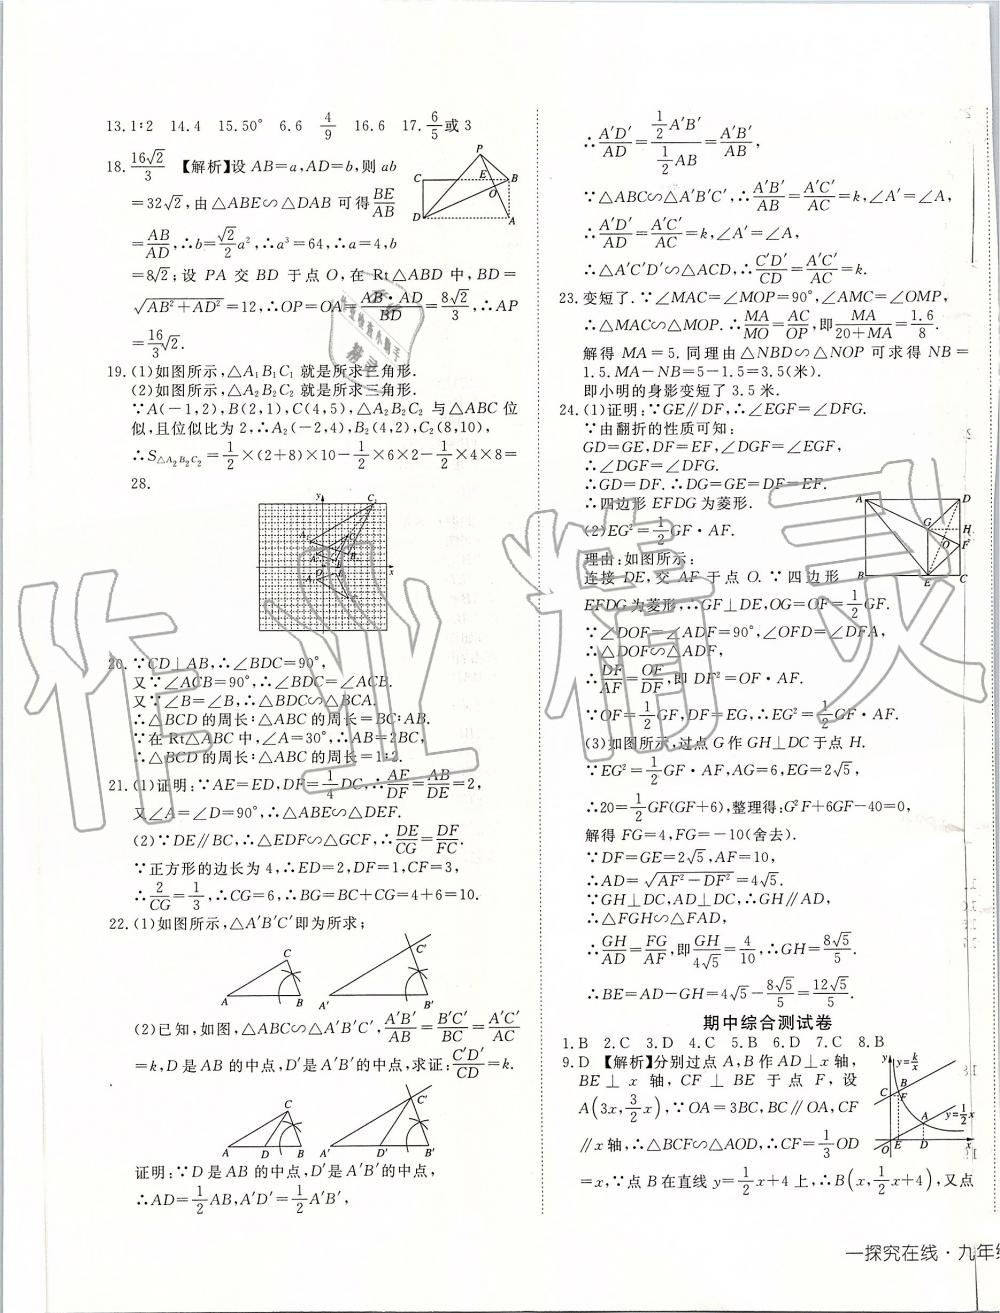 13.1∶2 14.4 15.50° 6.6 4/9 16.6 17.6/5或3
18.16√2/3 【解析】设 AB=a,AD=b,则 ab
=32√2,由△ABE∽△DAB 可得BE/AB
=AB/AD,∴b=√2/2a²,∴a³=64,∴a=4,b
=8√2;设 PA 交 BD 于点 O,在 Rt△ABD 中,BD=
√AB²+AD²=12,∴OP=OA=AB·AD/BD=8√2/3,∴AP
=16/3√2.
P
C E B
O
D A
19.(1)如图所示,△A₁B₁C₁ 就是所求三角形.
(2)如图所示,△A₂B₂C₂ 就是所求三角形.
∵A(-1,2),B(2,1),C(4,5),△A₂B₂C₂ 与△ABC 位
似,且位似比为 2,∴A₂(-2,4),B₂(4,2),C₂(8,10),
∴S△A₂B₂C₂=1/2×(2+8)×10-1/2×6×2-1/2×4×8=
28.
20.∵CD⊥AB,∴∠BDC=90°,
又∵∠ACB=90°,∴∠BDC=∠ACB.
又∵∠B=∠B,∴△BDC∽△BCA.
∴△BCD 的周长∶△ABC 的周长=BC∶AB.
∵在 Rt△ABC 中,∠A=30°,∴AB=2BC,
∴△BCD 的周长∶△ABC 的周长=1∶2.
21.(1)证明:∵AE=ED,DF=1/4DC,∴AE/DF=AB/DE=2,
又∠A=∠D=90°,∴△ABE∽△DEF.
(2)∵DE∥BC,∴△EDF∽△GCF,∴DE/CG=DF/FC.
∵正方形的边长为 4,∴ED=2,DF=1,CF=3,
∴2/CG=1/3,∴CG=6,∴BG=BC+CG=4+6=10.
22.(1)如图所示,△A′B′C′即为所求;
C C′
A B A′ B′
(2)已知,如图,△ABC∽△A′B′C′,A′B′/AB=B′C′/BC=A′C′/AC
=k,D 是 AB 的中点,D′是 A′B′的中点,求证:C′D′/CD=k.
C C′
A D B A′ D′ B′
证明:∵D 是 AB 的中点,D′是 A′B′的中点,
∴AD=1/2AB,A′D′=1/2A′B′,
∴A′D′/AD=1/2A′B′/1/2AB=A′B′/AB,
∵△ABC∽△A′B′C′,∴A′B′/AB=A′C′/AC=k,∠A′=∠A,
∴A′D′/AD=A′C′/AC=k,∠A′=∠A,
∴△A′C′D′∽△ACD,∴C′D′/CD=A′C′/AC=k.
23.变短了.∵∠MAC=∠MOP=90°,∠AMC=∠OMP,
∴△MAC∽△MOP.∴MA/MO=AC/OP,即MA/20+MA=1.6/8.
解得 MA=5.同理由△NBD∽△NOP 可求得 NB=
1.5.MA-NB=5-1.5=3.5(米).
即小明的身影变短了 3.5 米.
24.(1)证明:∵GE∥DF,∴∠EGF=∠DFG.
∵由翻折的性质可知:
GD=GE,DF=EF,∠DGF=∠EGF,
∴∠DGF=∠DFG.
∴GD=DF.∴DG=GE=DF=EF.
∴四边形 EFDG 为菱形.
(2)EG²=1/2GF·AF.
理由:如图所示:
连接 DE,交 AF 于点 O.∵四边形
EFDG 为菱形,∴GF⊥DE,OG=OF=1/2GF.
A D
G H
O F
B E C
∵∠DOF=∠ADF=90°,∠OFD=∠DFA,
∴△DOF∽△ADF,
∴DF/AF=OF/DF,即 DF²=OF·AF.
∵OF=1/2GF,DF=EG,∴EG²=1/2GF·AF.
(3)如图所示,过点 G 作 GH⊥DC 于点 H.
∵EG²=1/2GF·AF,AG=6,EG=2√5,
∴20=1/2GF(GF+6),整理得:G²F+6GF-40=0,
解得 FG=4,FG=-10(舍去).
∵DF=GE=2√5,AF=10,
∴AD=√AF²-DF²=4√5.
∵GH⊥DC,AD⊥DC,∴GH∥AD,
∴△FGH∽△FAD,
∴GH/AD=FG/AF,即GH/4√5=4/10,∴GH=8√5/5.
∴BE=AD-GH=4√5-8√5/5=12√5/5.
期中综合测试卷
1.B 2.C 3.D 4.C 5.B 6.D 7.C 8.B
9.D 【解析】分别过点 A,B 作 AD⊥x 轴,
BE⊥x 轴,CF⊥BE 于点 F,设
A(3x,3/2x),∵OA=3BC,BC∥OA,CF
∥x 轴,∴△BCF∽△AOD,∴CF=1/3OD
=x,∵点 B 在直线 y=1/2x+4 上,∴B(x,1/2x+4),又点
y y=k/x
C B
F
A y=1/2x
O E D x
一探究在线·九年级
作业精灵